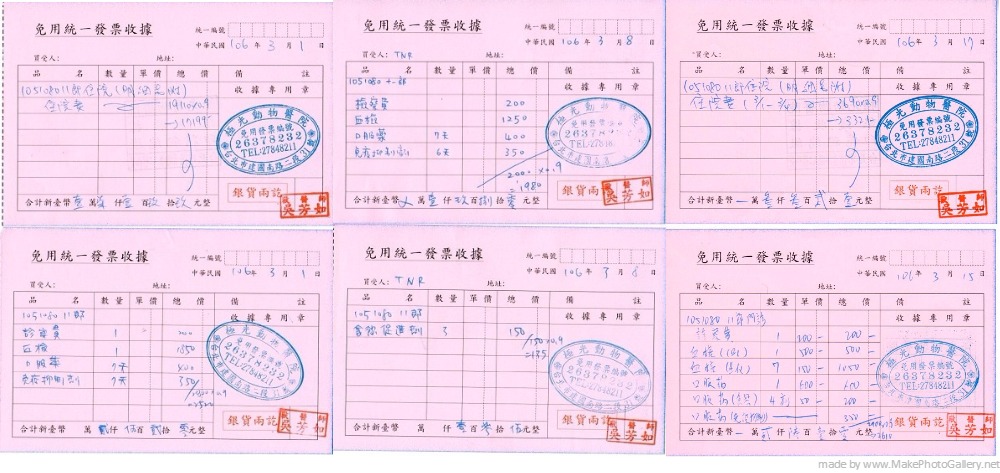 免用統一發票收據
統一編號
中華民國 106 年 3 月 1 日
買受人: 地址:
品 名 數 量 單 價 總 價 備 註
1051080 11郎住院
收據專用章
住院費 19110x0.9
→17199
極光動物醫院
免用發票編號
26378232
TEL:27848211
台北市建國南路二段31號
銀貨兩訖
醫師
吳芳如
合計新臺幣 萬 仟 百 拾 元整
免用統一發票收據
統一編號
中華民國 106 年 3 月 8 日
買受人: TNR 地址:
品 名 數 量 單 價 總 價 備 註
1051080 十一郎
收據專用章
檢察費 200
血檢 1250
口服藥 7天 400
免疫抑制劑 6天 350
2200x0.9
=1980
極光動物醫院
免用發票編號
26378232
TEL:27848211
台北市建國南路
銀貨兩訖
醫師
吳芳如
合計新臺幣 萬壹仟玖百捌拾零元整
免用統一發票收據
統一編號
中華民國 106 年 3 月 17 日
買受人: 地址:
品 名 數 量 單 價 總 價 備 註
1051080 11郎住院
收據專用章
住院費 3690x0.9
→3321
極光動物醫院
免用發票編號
26378232
TEL:27848211
台北市建國南路二段31號
銀貨兩訖
醫師
吳芳如
合計新臺幣 萬叁仟叁百貳拾壹元整
免用統一發票收據
統一編號
中華民國 106 年 3 月 1 日
買受人: 地址:
品 名 數 量 單 價 總 價 備 註
1051080 11郎
收據專用章
診察費 1 200
血檢 1 1850
口服藥 7天 400
免疫抑制劑 7天 350
2800x0.9
=2520
極光動物醫院
免用發票編號
26378232
TEL:27848211
台北市建國南路二段31號
銀貨兩訖
醫師
吳芳如
合計新臺幣 萬貳仟伍百貳拾零元整
免用統一發票收據
統一編號
中華民國 106 年 3 月 8 日
買受人: TNR 地址:
品 名 數 量 單 價 總 價 備 註
1051080 11郎
收據專用章
食慾促進劑 3 150
150x0.9
=135
極光動物醫院
免用發票編號
26378232
TEL:27848211
銀貨兩訖
醫師
吳芳如
合計新臺幣 萬 仟壹百叁拾伍元整
免用統一發票收據
統一編號
中華民國 106 年 3 月 15 日
買受人: 地址:
品 名 數 量 單 價 總 價 備 註
1051080 11郎門診
收據專用章
診察費 1 200 - 200 -
血檢 1 500 - 500 -
血檢 7 150 - 1050 -
口服藥 1 600 - 600 -
口服藥 4 50 - 200 -
口服藥 350 -
極光動物醫院
免用發票編號
26378232
TEL:27848211
台北市建國南路二段31號
銀貨兩訖
醫師
吳芳如
合計新臺幣 萬貳仟陸百壹拾零元整
made by www.MakePhotoGallery.net